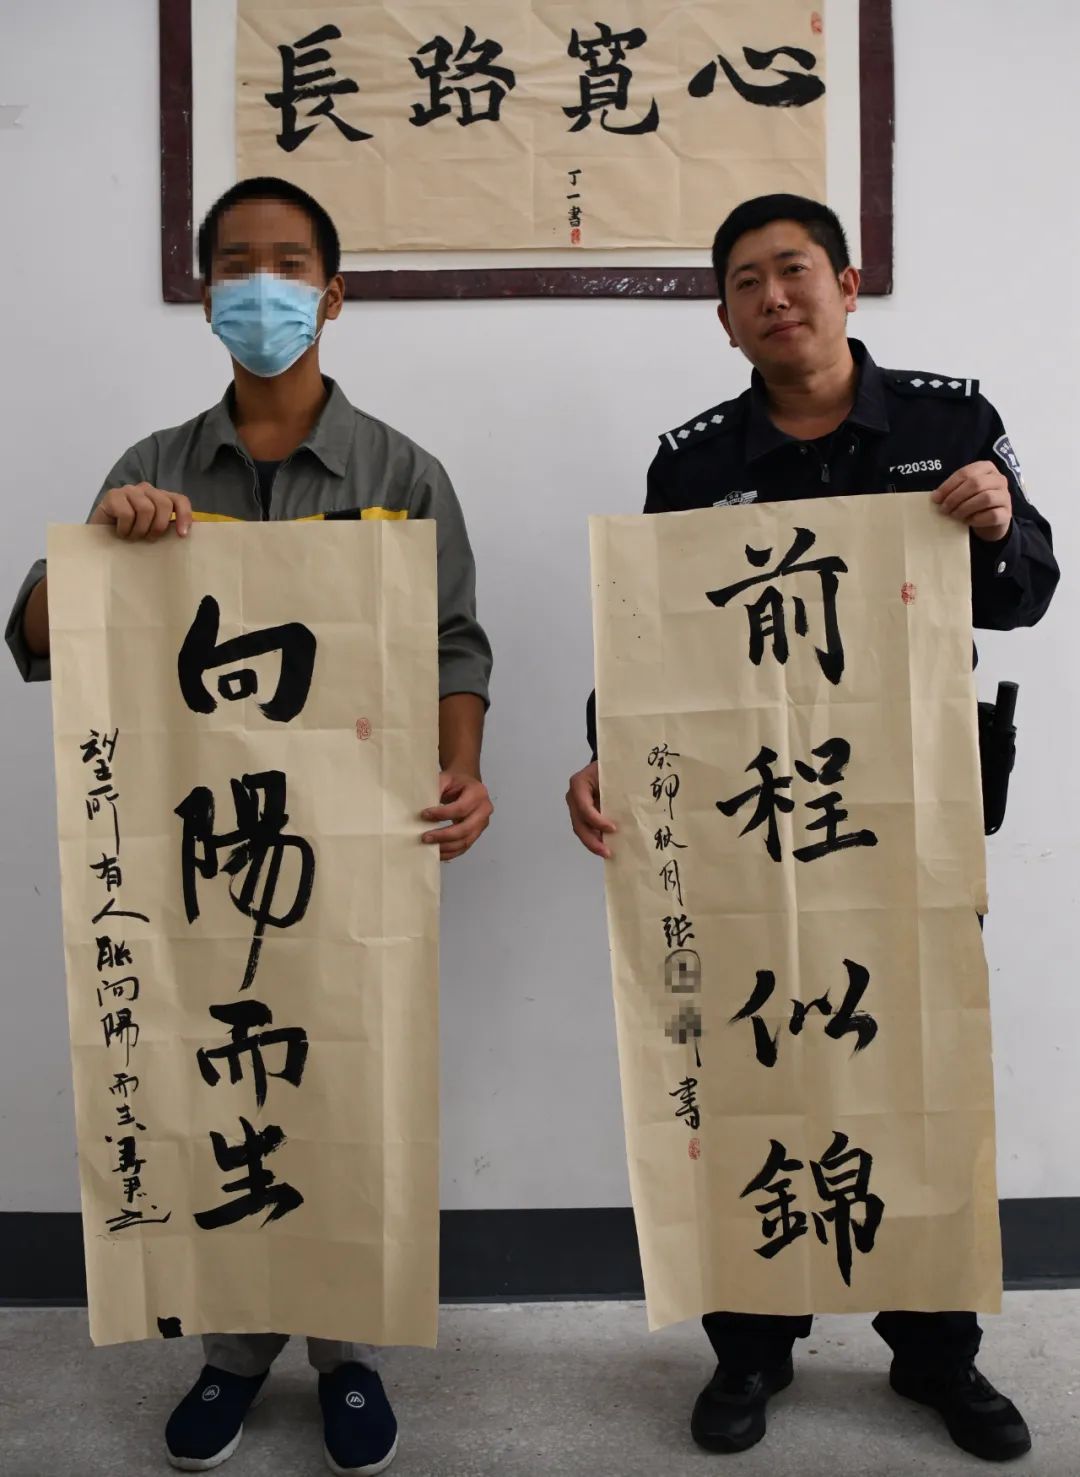 心寬路長
丁一書
向陽而生
望所有人能向陽而生
前程似錦
癸卯秋月張
書
220336